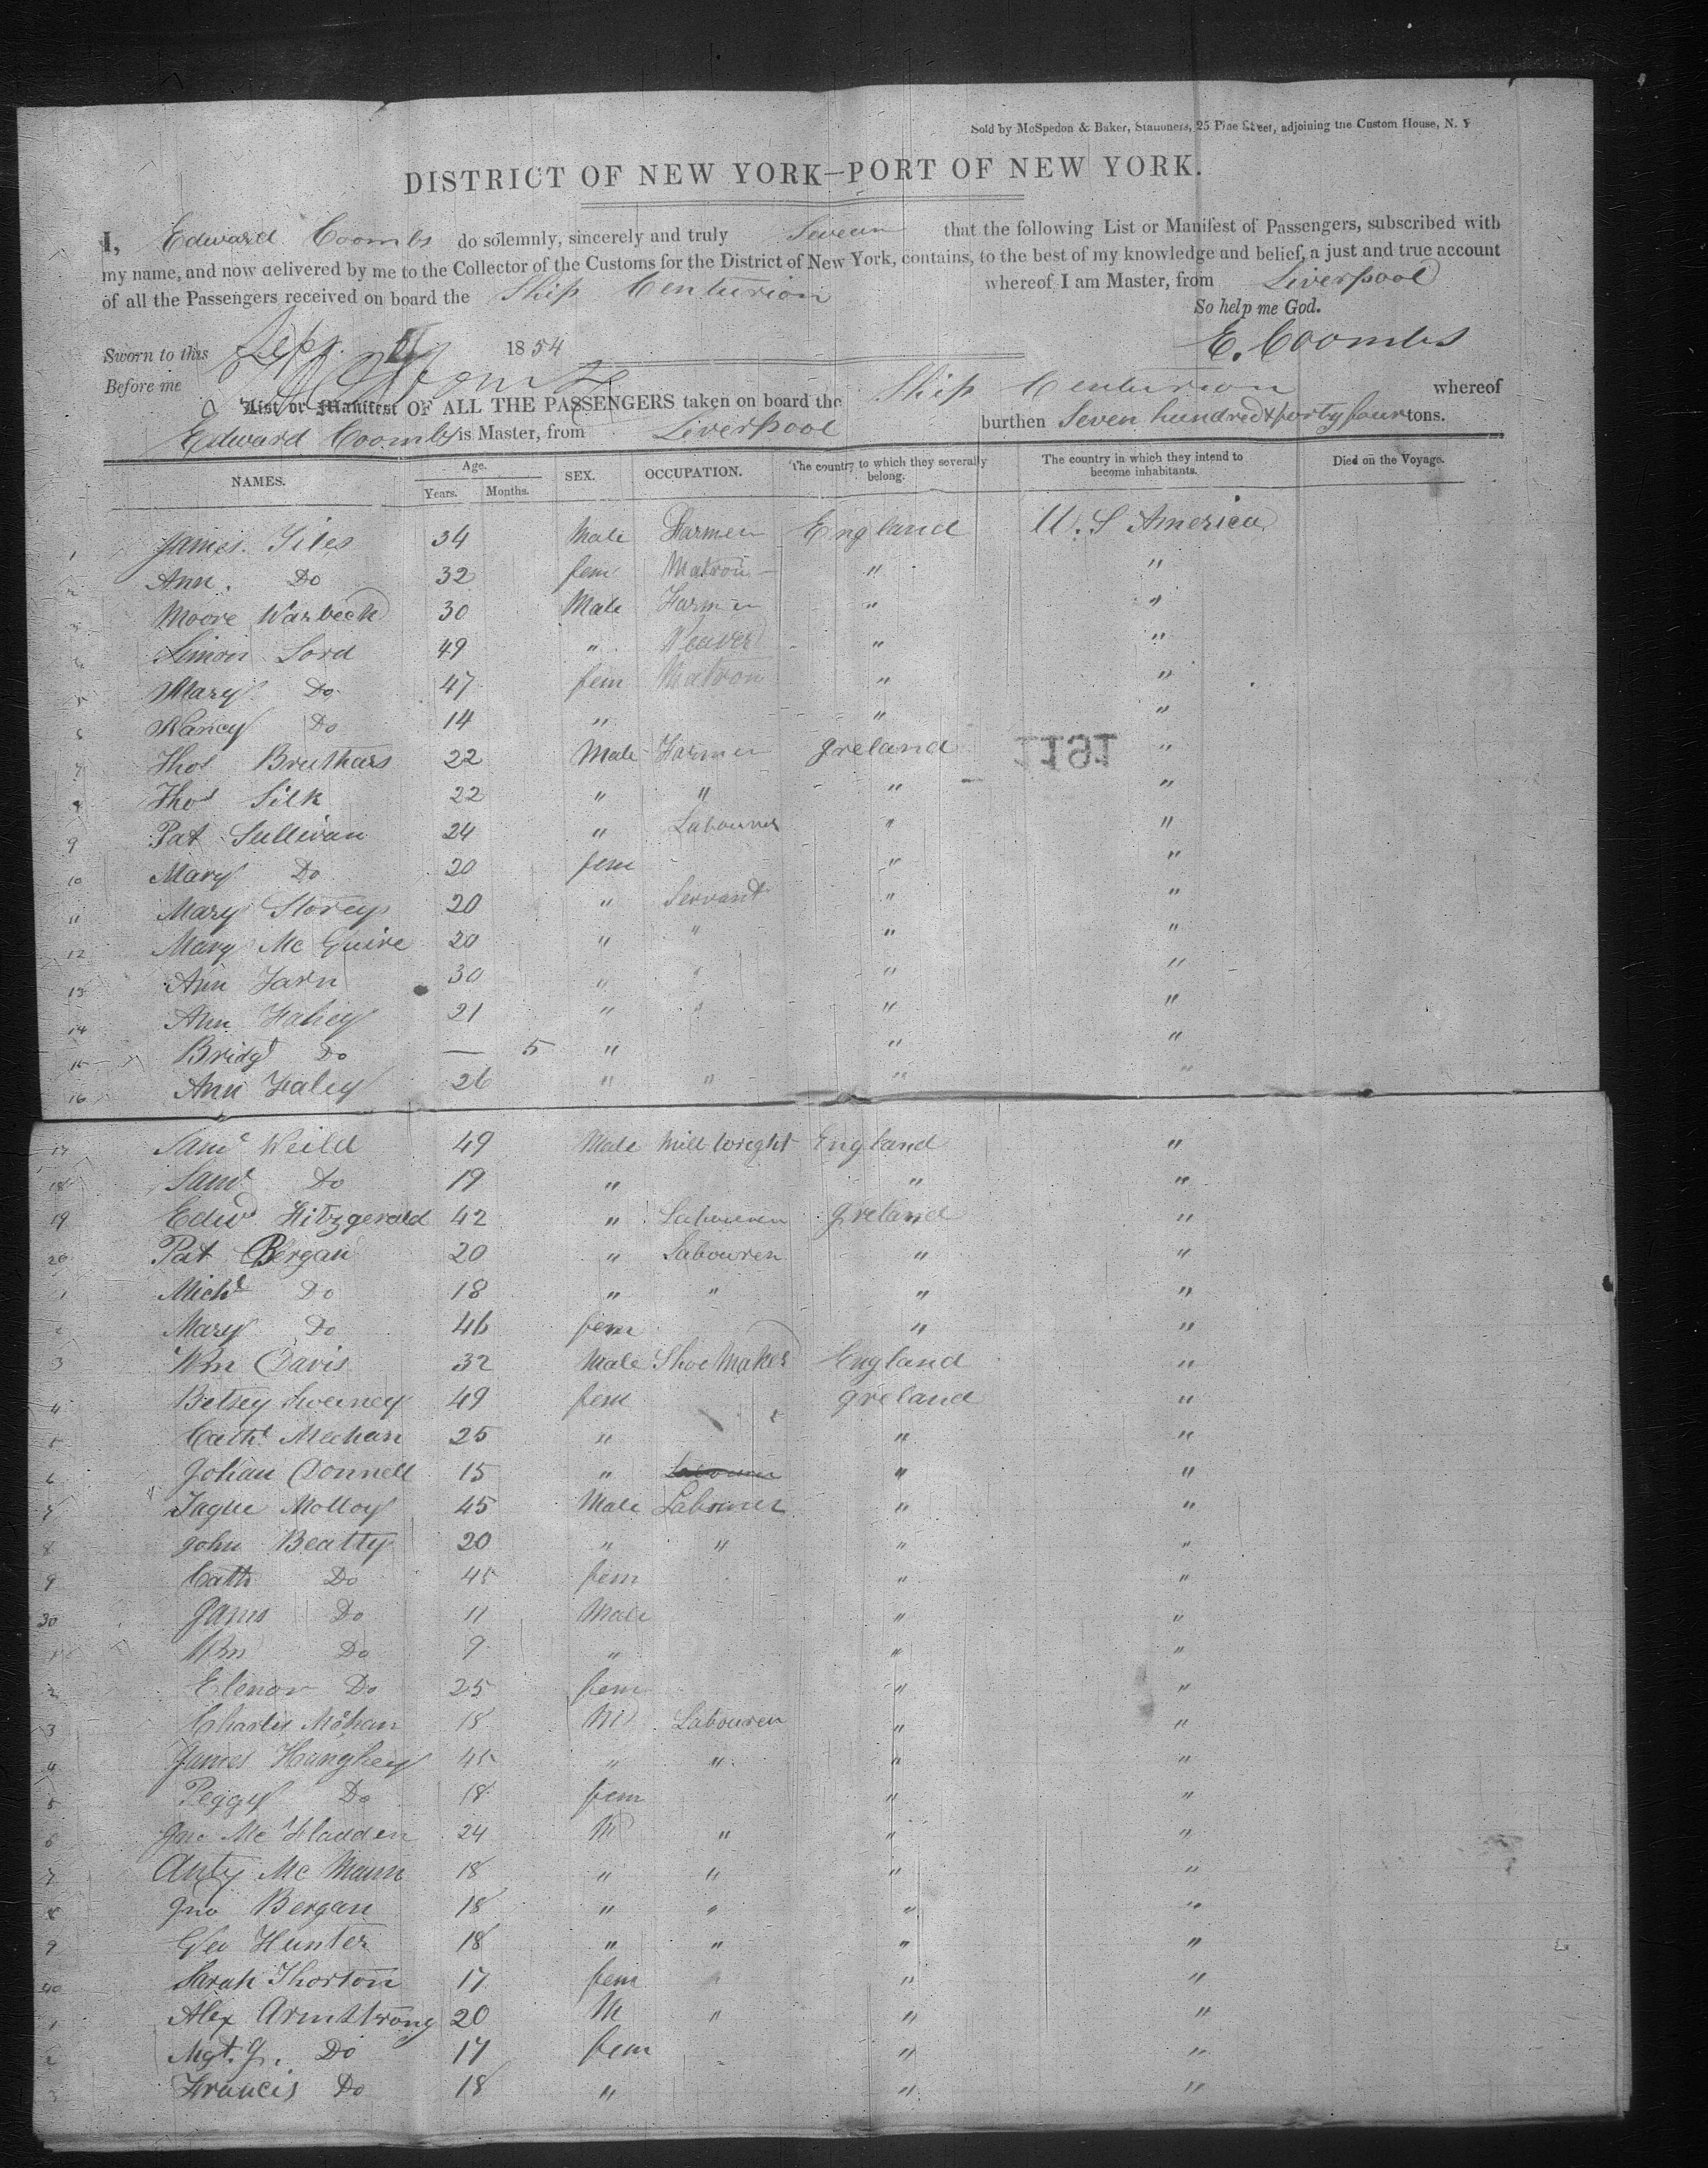 Sold by McSpedon & Baker, Stationers, 25 Pine Street, adjoining the Custom House, N. Y
DISTRICT OF NEW YORK—PORT OF NEW YORK.
I, Edward Coombs do solemnly, sincerely and truly Swear that the following List or Manifest of Passengers, subscribed with
my name, and now delivered by me to the Collector of the Customs for the District of New York, contains, to the best of my knowledge and belief, a just and true account
of all the Passengers received on board the Ship Centurion whereof I am Master, from Liverpool
So help me God.
Sworn to this Sepr. 1854 E. Coombs
Before me
List or Manifest OF ALL THE PASSENGERS taken on board the Ship Centurion whereof
Edward Coombs is Master, from Liverpool burthen Seven hundred & forty four tons.
NAMES. Age. Years. Months. SEX. OCCUPATION. The country to which they severally belong. The country in which they intend to become inhabitants. Died on the Voyage.
1 James 34 Male Farmer England U. S America
2 Ann Do 32 fem Matron " "
3 Moore Warbeck 30 Male Farmer " "
4 Simon Lord 49 " Weaver " "
5 Mary Do 47 fem Matron " "
6 Nancy Do 14 " " "
7 Thos Bruthars 22 Male Farmer Ireland "
1191
8 Thos Silk 22 " " " "
9 Pat Sullivan 24 " Labourer " "
10 Mary Do 20 fem " "
11 Mary Storey 20 " Servant " "
12 Mary Mc Guire 20 " " " "
13 Ann 30 " " " "
14 Ann Fahey 21 " " " "
15 Bridgt Do — 5 " " "
16 Ann Faley 26 " " " "
17 Saml Weild 49 Male Mill wright England "
18 Saml Do 19 " " "
19 Edwd Fitzgerald 42 " Labourer Ireland "
20 Pat Bergan 20 " Labourer " "
1 Michl Do 18 " " " "
2 Mary Do 46 fem " "
3 Wm Davis 32 Male Shoe Maker England "
4 Betsey Sweeney 49 fem Ireland "
5 Cathe Meehan 25 " " "
6 Johan Connell 15 " Labourer " "
7 Tague Molloy 45 Male Labourer " "
8 John Beatty 20 " " " "
9 Cath Do 45 fem " "
30 James Do 11 Male " "
1 Wm Do 9 " " "
2 Elenor Do 25 fem " "
3 Charles Mohan 18 M Labourer " "
4 James Haughey 45 " " " "
5 Peggy Do 18 fem " "
6 Jno Mc Fladden 24 M " " "
7 Anty Mc Mann 18 " " " "
8 Jno Bergan 18 " " " "
9 Geo Hunter 18 " " " "
40 Sarah Thorton 17 fem " " "
1 Alex Armstrong 20 M " " "
2 Mgt. J. Do 17 fem " "
3 Francis Do 18 " " "